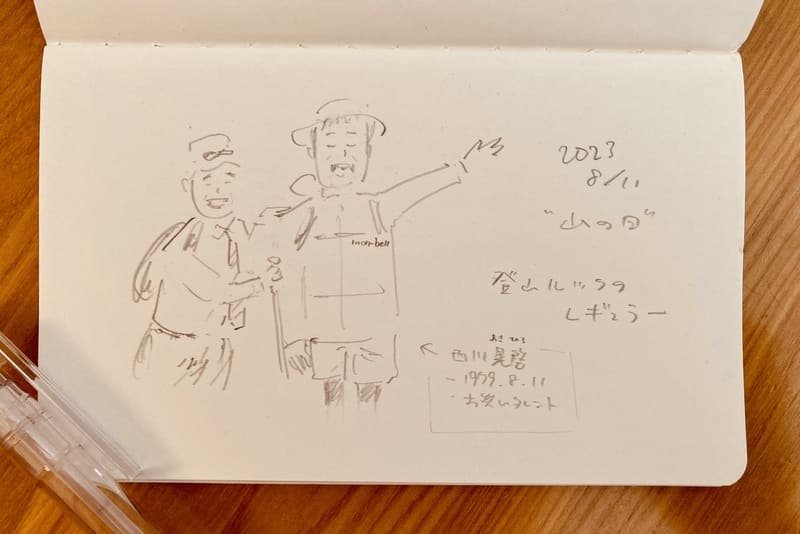 mont-bell
2023
8/11
"山の日"
登山ルックの
レギュラー
あきひろ
西川晃啓
- 1979.8.11
・お笑いタレント